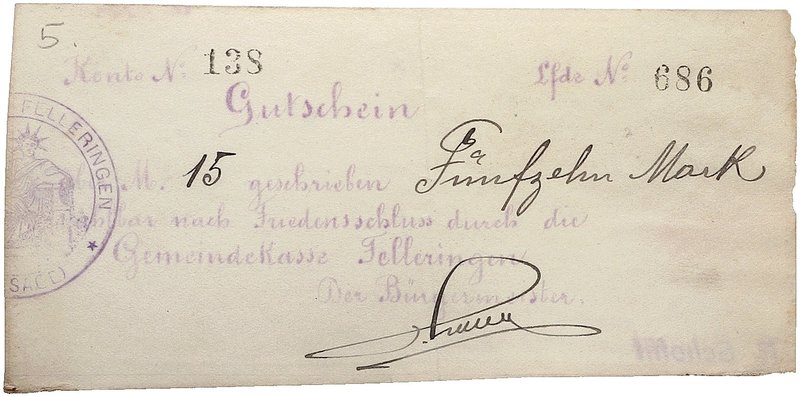 5.
Konto No. 138 Lfde No. 686
Gutschein
M. 15 geschrieben Fünfzehn Mark
nach Friedensschluss durch die
Gemeindekasse Felleringen
Der Bürgermeister.
FELLERINGEN